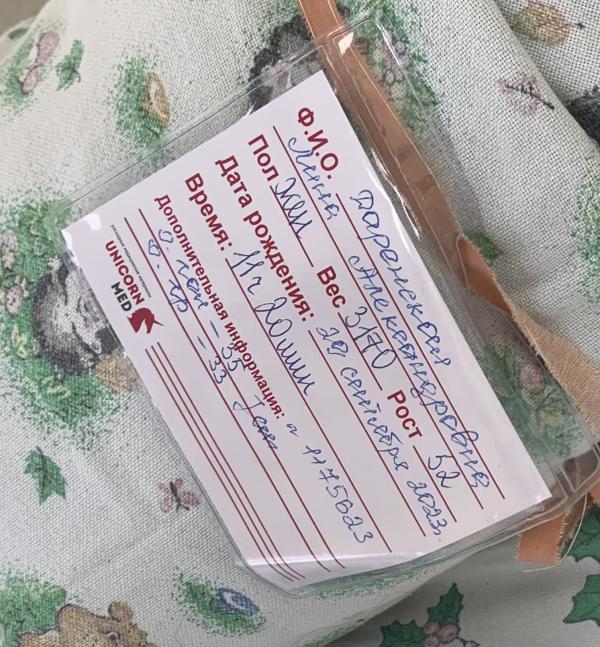 Ф.И.О. Даренская
Лина Александровна
Пол жен Вес 3170 Рост 52
Дата рождения: 28 сентября 2023г.
Время: 11ч 20мин
Дополнительная информация: 1175623
О. гол - 35
О. гр - 33
UNICORN
MED